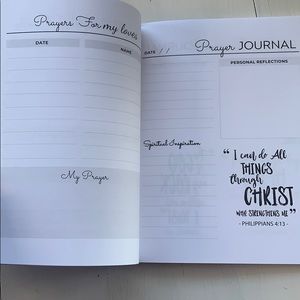 Prayers For my loves
DATE
NAME
My Prayer
DATE / /
Prayer JOURNAL
PERSONAL REFLECTIONS
Spiritual Inspiration
“ I can do All
THINGS
through
CHRIST
WHO STRENGTHENS ME ”
- PHILIPPIANS 4:13 -